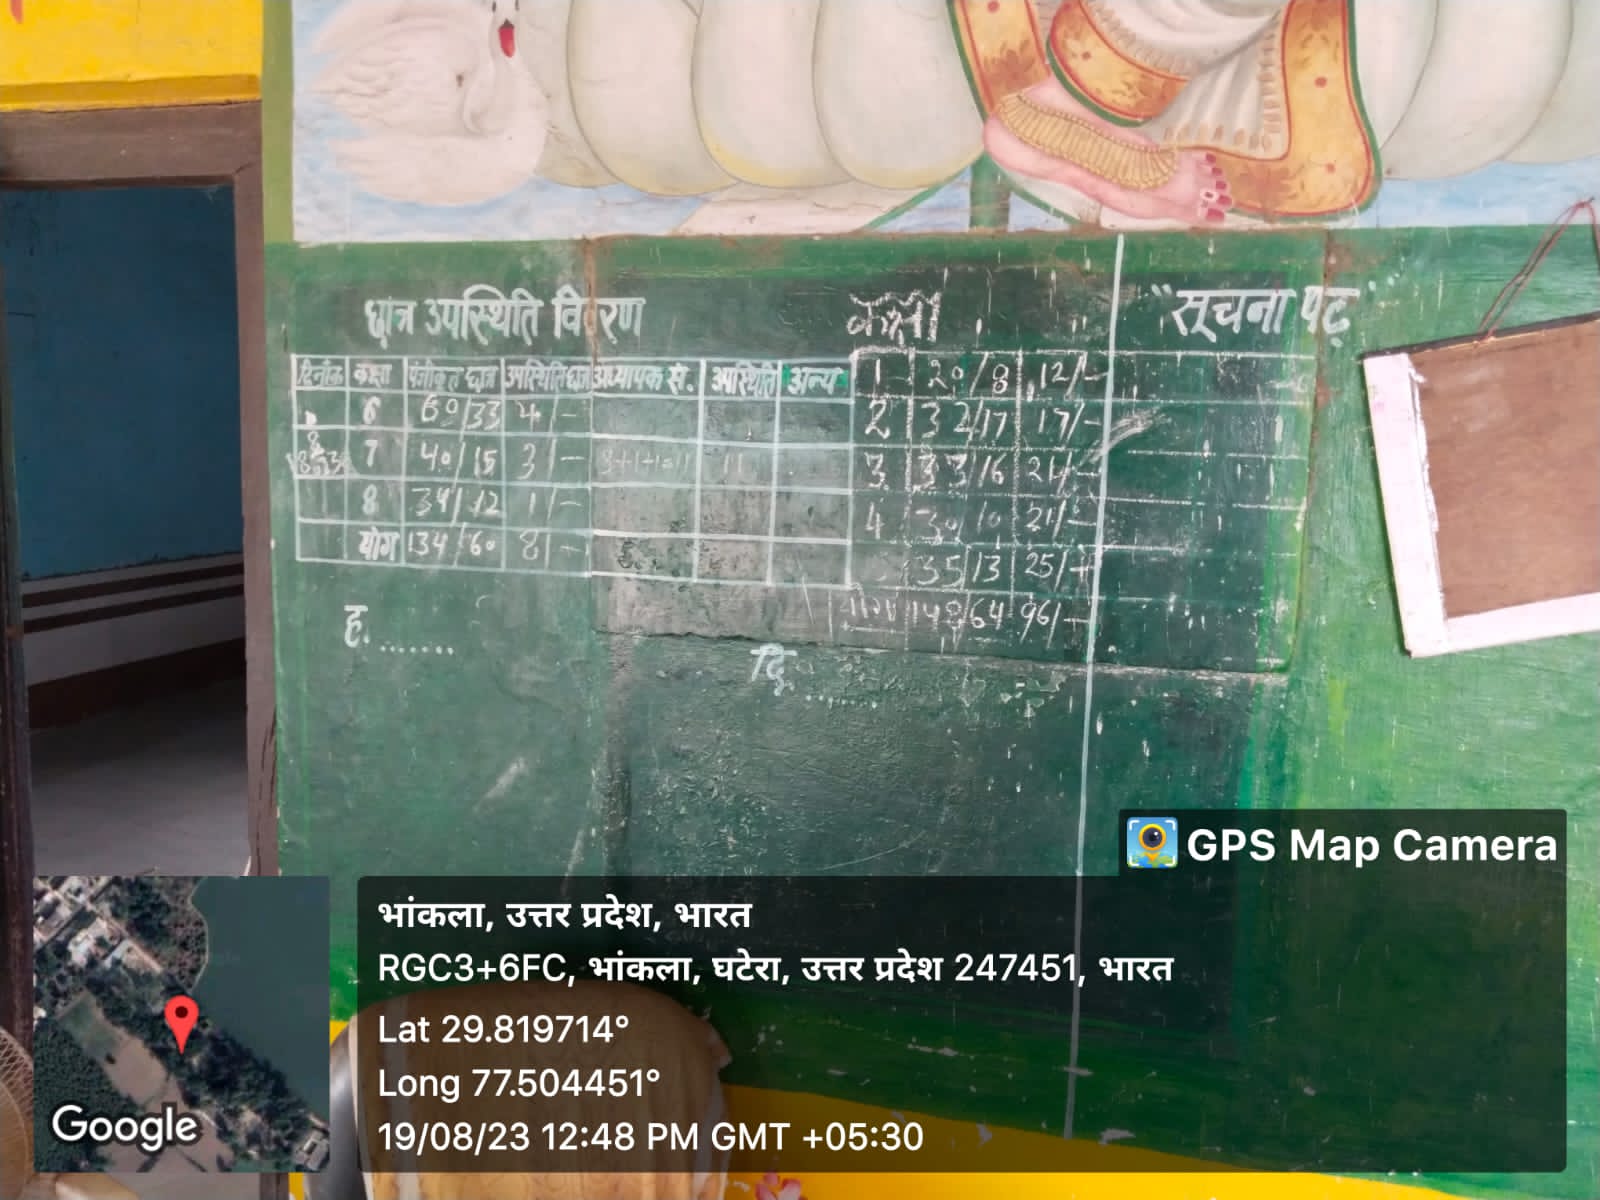 छात्र उपस्थिति विवरण
कक्षा
"सूचना पट"
दिनांक कक्षा पंजीकृत छात्र उपस्थिति छात्र अध्यापक सं. उपस्थिति अन्य
1 20/8 12/-
6 60/33 4/-
2 32/17 17/-
7 40/15 3/- 11
3 33/16 21/-
8 34/12 1/-
4 30/10 21/-
योग 134/60 8/-
35/13 25/-
योग 148/64 96/-
ह. .......
दि. .......
GPS Map Camera
भांकला, उत्तर प्रदेश, भारत
RGC3+6FC, भांकला, घटेरा, उत्तर प्रदेश 247451, भारत
Lat 29.819714°
Long 77.504451°
19/08/23 12:48 PM GMT +05:30
Google